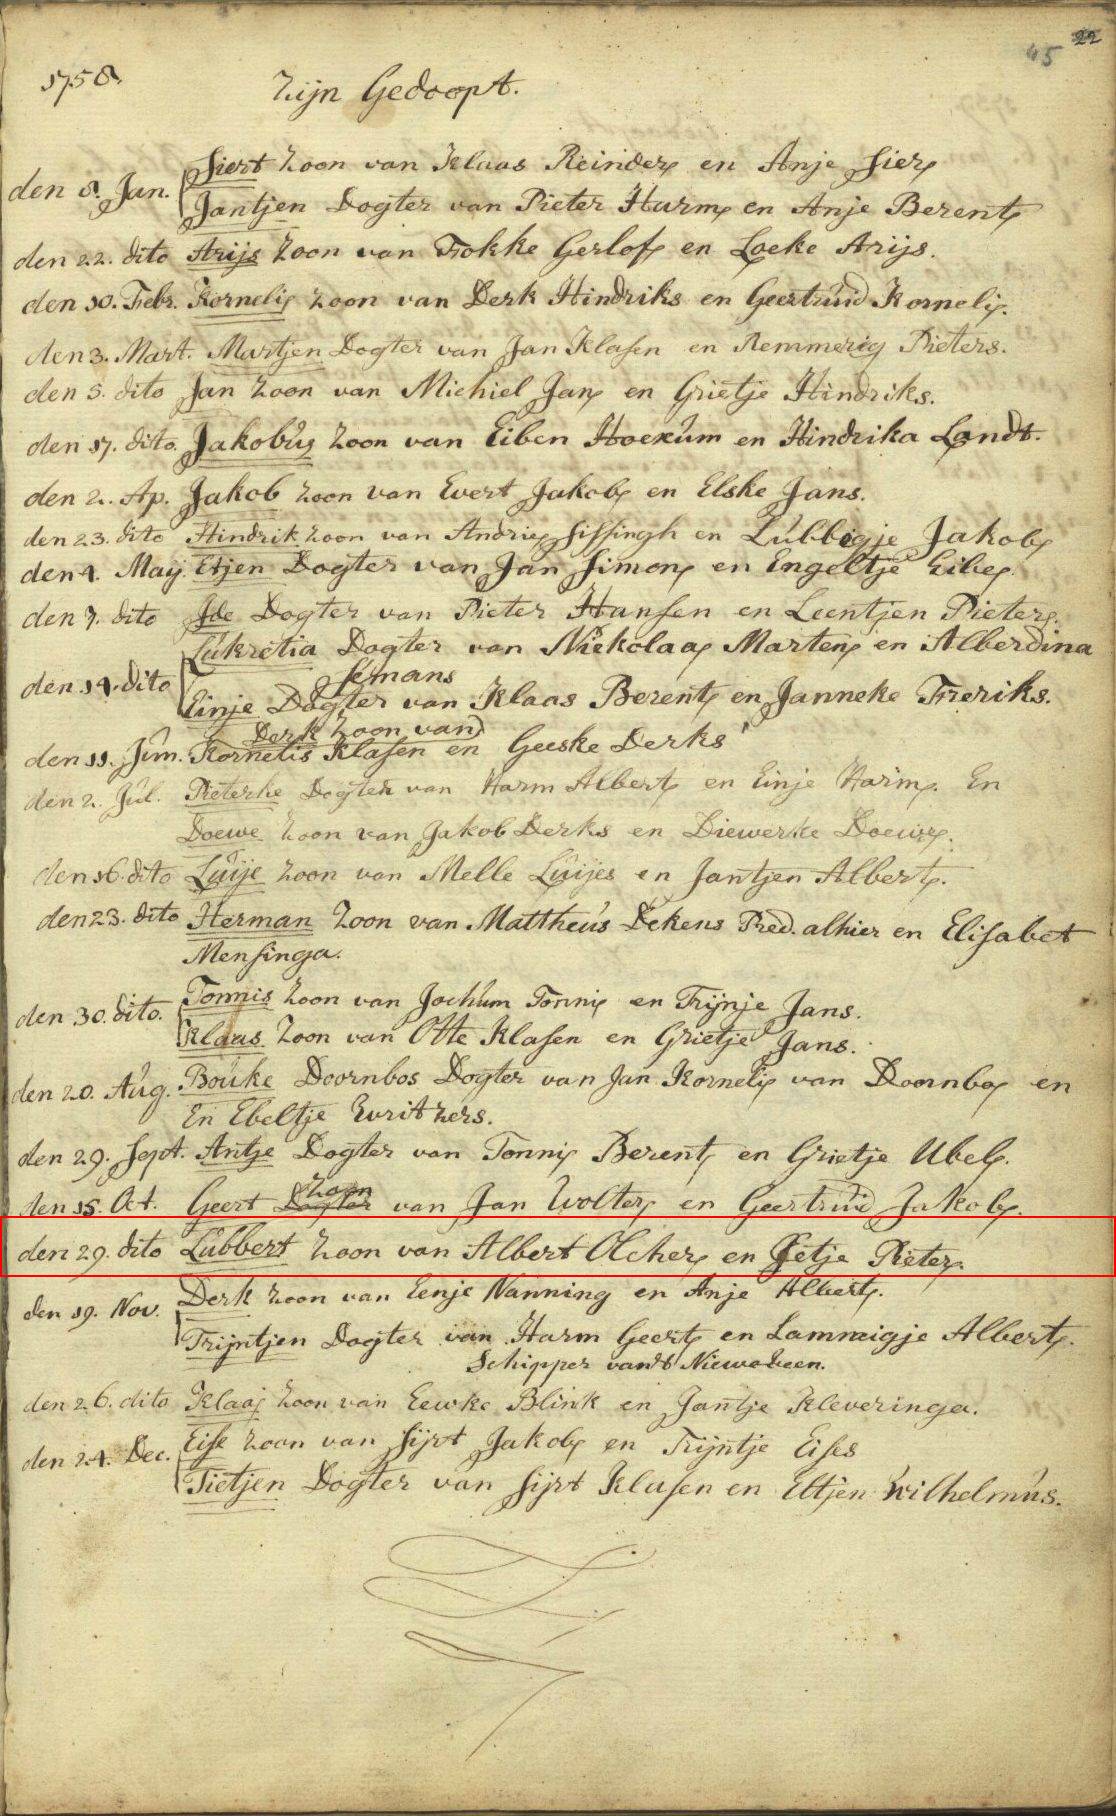 22
45
1758.
Zijn Gedoopt.
Siert Zoon van Klaas Reinders en Anje Siers
den 8. Jan.
Jantjen Dogter van Pieter Harms en Anje Berents
den 22. dito Arijs Zoon van Fokke Gerlofs en Loeke Arijs.
den 10. Febr. Kornelis Zoon van Derk Hindriks en Geertruid Kornelis.
den 3. Mart. Martjen Dogter van Jan Klasen en Remmerig Pieters.
den 5. dito Jan Zoon van Michiel Jans en Grietje Hindriks.
den 17. dito. Jakobus Zoon van Eiben Hoexum en Hindrika Landt.
den 2. Ap. Jakob Zoon van Evert Jakobs en Elske Jans.
den 23. dito Hindrik Zoon van Andries Sissingh en Lubbigje Jakobs
den 4. Maij. Etjen Dogter van Jan Simons en Engeltje Eibes
den 7. dito Ide Dogter van Pieter Hansen en Leentjen Pieters.
Lukretia Dogter van Niekolaas Martens en Alberdina
Semans
den 14. dito
Einje Dogter van Klaas Berents en Janneke Freriks.
Derk Zoon van
den 11. Jun. Kornelis Klasen en Geeske Derks
den 2. Jul. Pieterke Dogter van Harm Alberts en Einje Harms. En
Doewe Zoon van Jakob Derks en Diewerke Doewes.
den 16. dito Luije Zoon van Melle Luijes en Jantjen Alberts.
den 23. dito Herman Zoon van Mattheus Dekens Pred. alhier en Elisabet
Mensinga.
Tonnis Zoon van Jochum Tonnis en Trijnje Jans.
den 30. dito.
Klaas Zoon van Otte Klasen en Grietje Jans.
den 20. Aug. Bouke Doornbos Dogter van Jan Kornelis van Doornbos en
En Ebeltje Everitzers.
den 29. Sept. Antje Dogter van Tonnis Berents en Grietje Ubels.
Zoon
den 15. Oct. Geert Dogter van Jan Wolters en Geertruid Jakobs.
den 29. dito Lubbert Zoon van Albert Olchers en Jetje Pieters.
Derk Zoon van Eenje Nanning en Anje Alberts.
den 19. Nov.
Trijntjen Dogter van Harm Geerts en Lammigje Alberts.
Schipper vandt Nieweveen.
den 26. dito Klaas Zoon van Eewke Blink en Jantje Kleveringa.
Eise Zoon van Sijrt Jakobs en Trijntje Eises
den 24. Dec.
Tietjen Dogter van Sijrt Klasen en Eltjen Wilhelmus.